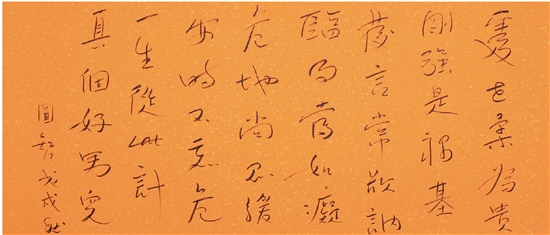 處世柔為貴
剛強是禍基
發言常欲訥
臨局當如癡
危地尚思緩
安時不忘危
一生從此計
真個好男兒
圓智戊戌秋